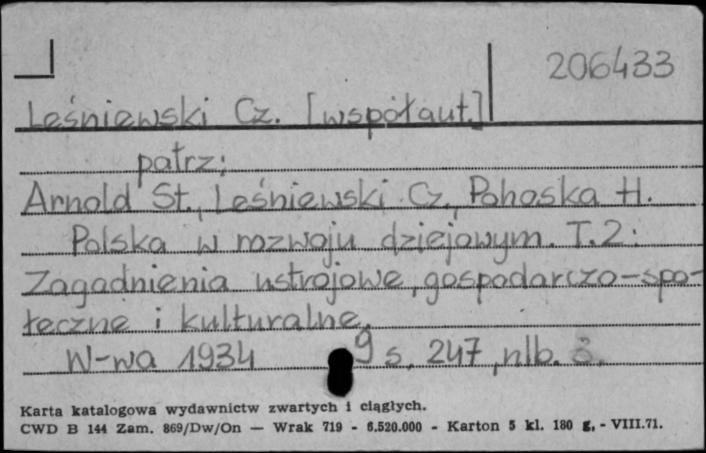 206433
Leśniewski Cz. [współaut.]
patrz:
Arnold St., Leśniewski Cz., Pohoska H.
Polska w rozwoju dziejowym. T.2:
Zagadnienia ustrojowe, gospodarczo-spo-
łeczne i kulturalne.
W-wa 1934 9 s. 247, nlb. 3.
Karta katalogowa wydawnictw zwartych i ciągłych.
CWD B 144 Zam. 869/Dw/On — Wrak 719 - 6.520.000 - Karton 5 kl. 180 g. - VIII.71.